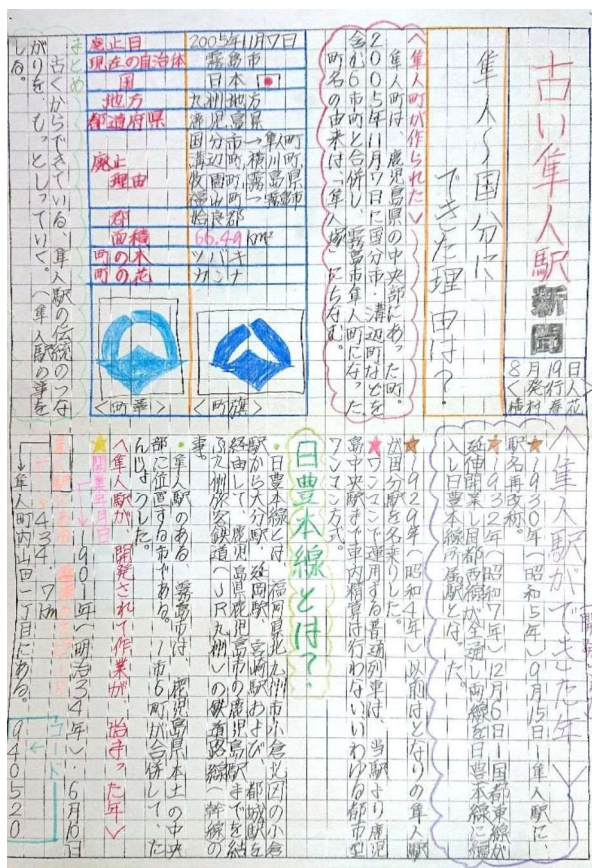 古い隼人駅
新聞
8月19日
<発行人>
隼人〜国分に
できた理由は?
<隼人町が作られた>
隼人町は、鹿児島県の中央部にあった町。
2005年11月7日に国分市・溝辺町などを
含む6市町と合併し、霧島市隼人町になった。
町名の由来は、「隼人塚」にちなむ。
廃止日 2005年11月7日
現在の自治体 霧島市
国 日本
地方 九州地方
都道府県 鹿児島県
廃止理由
国分市→隼人町
溝辺町、横川町
牧園町、霧島町
福山町→霧島市
郡 姶良郡
面積 66.49km²
町の木 ツバキ
町の花 カンナ
<町旗>
<町章>
まとめ
古くからできている、隼人駅の伝統のつな
がりを、もっとしっていく。(隼人駅の事を
しる。
<隼人駅ができた年>
★1930年(昭和5年)9月15日-隼人駅に、
駅名再改称。
★1932年(昭和7年)12月6日-国都東線が
延伸開業し国都西線が全通し両線を日豊本線に編
入し日豊本線所属駅となった。
★1929年(昭和4年)以前はとなりの隼人駅
が国分駅を名乗りした。
★ワンマンで運用する普通列車は、当駅より鹿児
島中央駅まで車内精算は行わないいわゆる都市型
ワンマン方式。
日豊本線とは?
・日豊本線とは、福岡県北九州市小倉北区の小倉
駅から大分駅、延岡駅、宮崎駅および、都城駅を
経由して、鹿児島県鹿児島市の鹿児島駅までを結
ぶ九州旅客鉄道(JR九州)の鉄道路線(幹線の
事。
・隼人駅のある、霧島市は、鹿児島県本土の中央
部に位置する市である。1市6町が合併して、たん
じょうした。
<隼人駅が、開発されて作業が、始まった年>
★開業年月日
1901年(明治34年)・6月10日
434.7km
隼人町内山田一丁目にある。
コード
940520